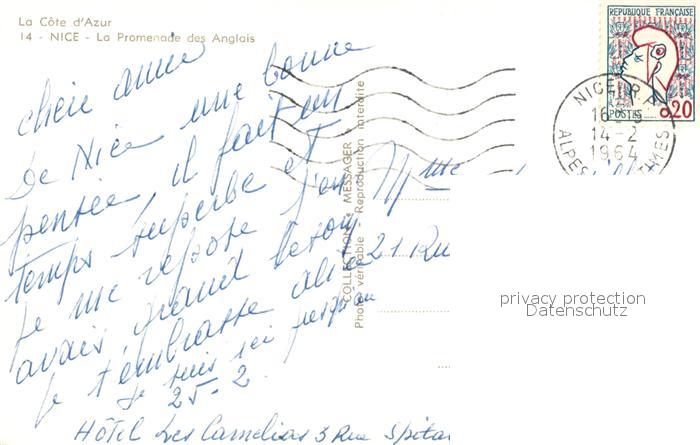 La Côte d'Azur
14 - NICE - La Promenade des Anglais
chère amie
De Nice une bonne
pensée, il fait un
temps superbe et
Je me repose j'en
avais grand besoin
Je t'embrasse
Je suis ici jusqu'au
25-2
Hôtel Les Camelias 3 Rue Spita
COLLECTION MESSAGER
Photo véritable - Reproduction interdite
RÉPUBLIQUE FRANÇAISE
0,20
POSTES
NICE R.P.
16
14-2
1964
ALPES
MMES
Mme
21 Ru
privacy protection
Datenschutz